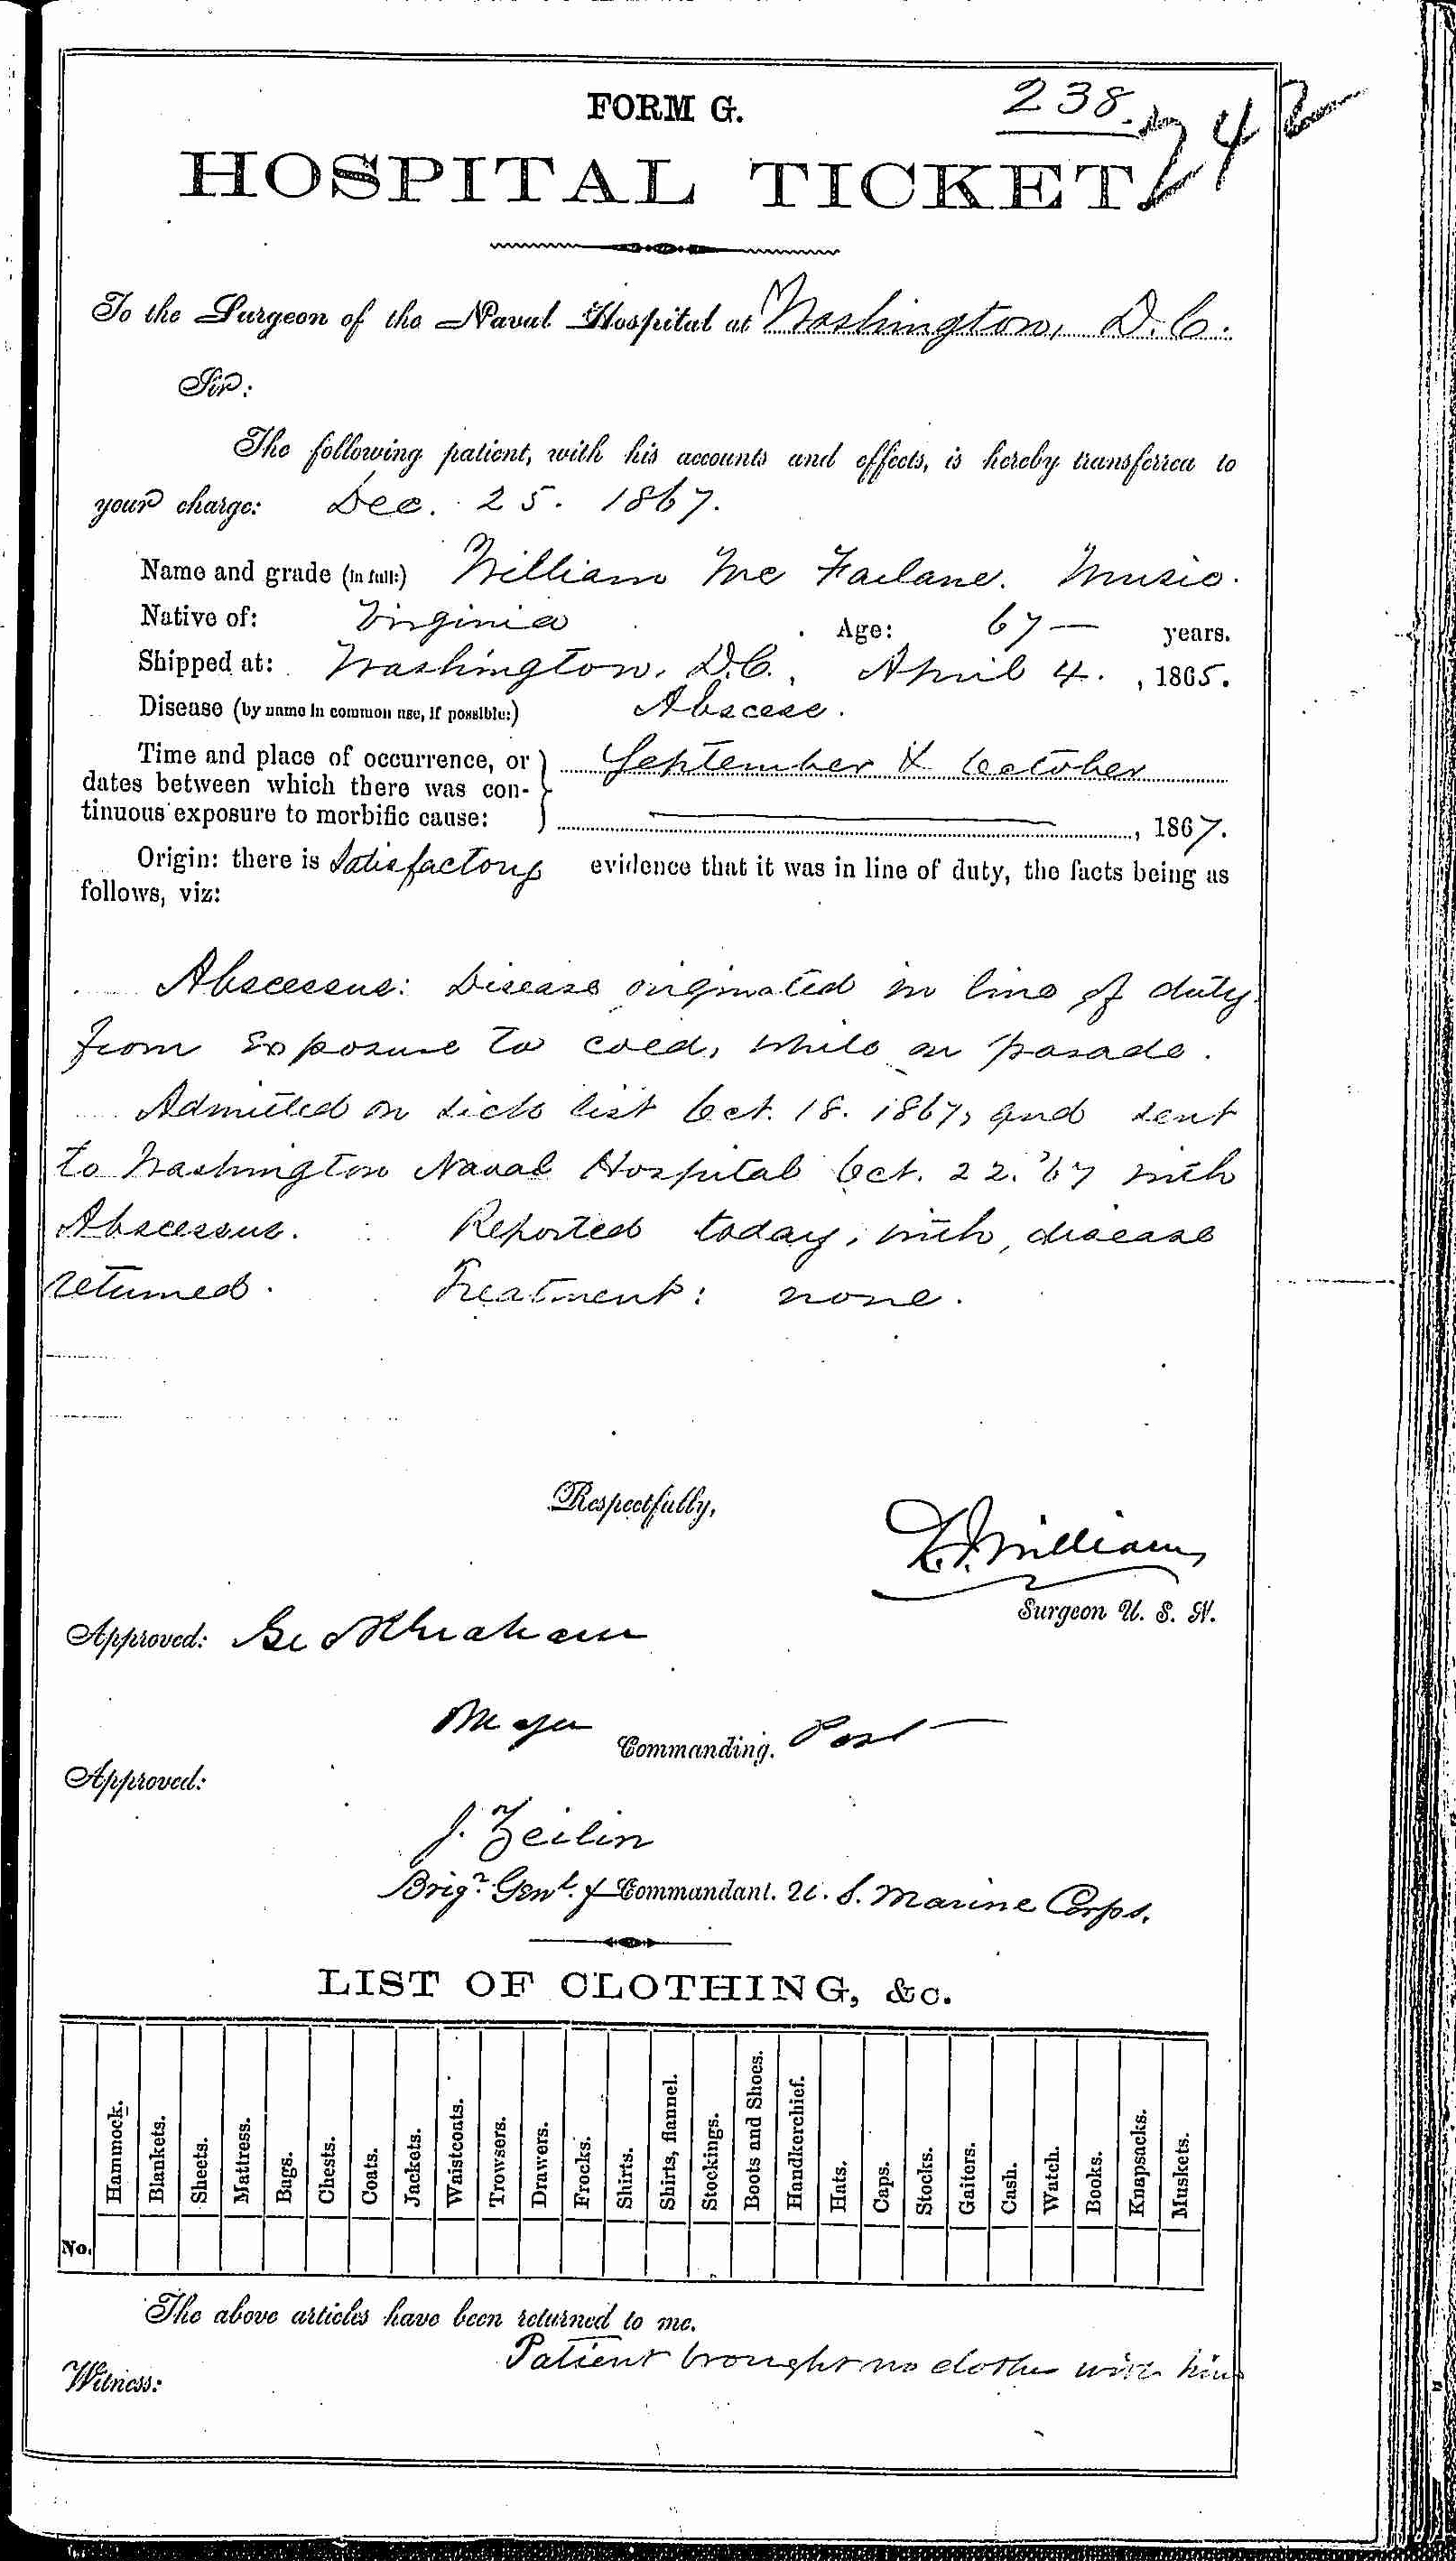 FORM G.
238.
242
HOSPITAL TICKET
To the Surgeon of the Naval Hospital at Washington, D.C.
Sir:
The following patient, with his accounts and effects, is hereby transferred to
your charge: Dec. 25. 1867.
Name and grade (in full:) William Mc Farlane. Music.
Native of: Virginia Age: 67 — years.
Shipped at: Washington, D.C., April 4. , 1865.
Disease (by name in common use, if possible:) Abscess.
Time and place of occurrence, or September & October
dates between which there was con-
tinuous exposure to morbific cause: , 1867.
Origin: there is Satisfactory evidence that it was in line of duty, the facts being as
follows, viz:
Abscessus: Disease originated in line of duty
from Exposure to cold, while on parade.
Admitted on sick list Oct. 18. 1867, and sent
to Washington Naval Hospital Oct. 22. '67 with
Abscessus. Reported today, with, disease
returned. Treatment: none.
Respectfully,
Williams
Surgeon U. S. N.
Approved:
Major Commanding. Post
Approved:
J. Zeilin
Brigr. Genl. & Commandant. U. S. Marine Corps.
LIST OF CLOTHING, &c.
Hammock. Blankets. Sheets. Mattress. Bags. Chests. Coats. Jackets. Waistcoats. Trowsers. Drawers. Frocks. Shirts. Shirts, flannel. Stockings. Boots and Shoes. Handkerchief. Hats. Caps. Stocks. Gaiters. Cash. Watch. Books. Knapsacks. Muskets.
No.
The above articles have been returned to me.
Patient brought no clothes with him
Witness: